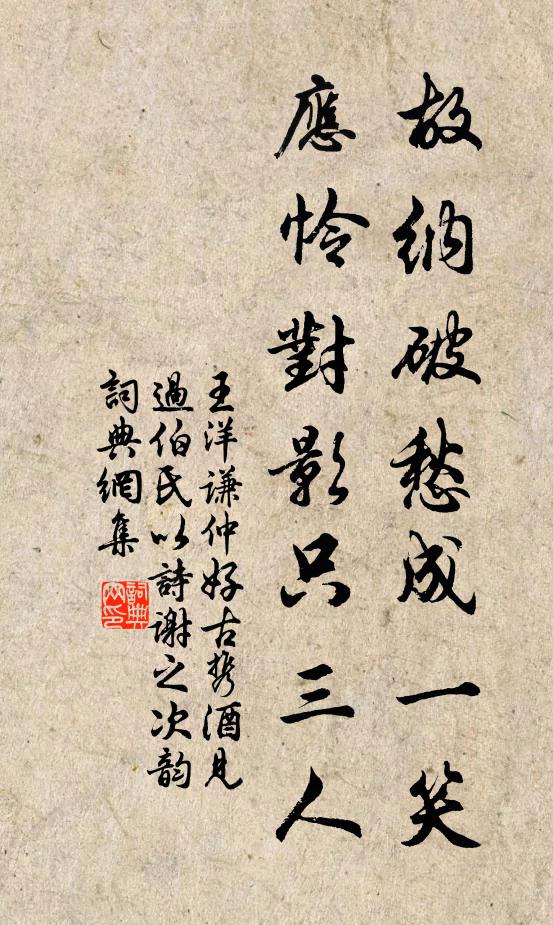 故納破愁成一笑
應憐對影只三人
王洋謙仲好古携酒見
過伯氏以詩謝之次韵
詞典網集
詞典网印